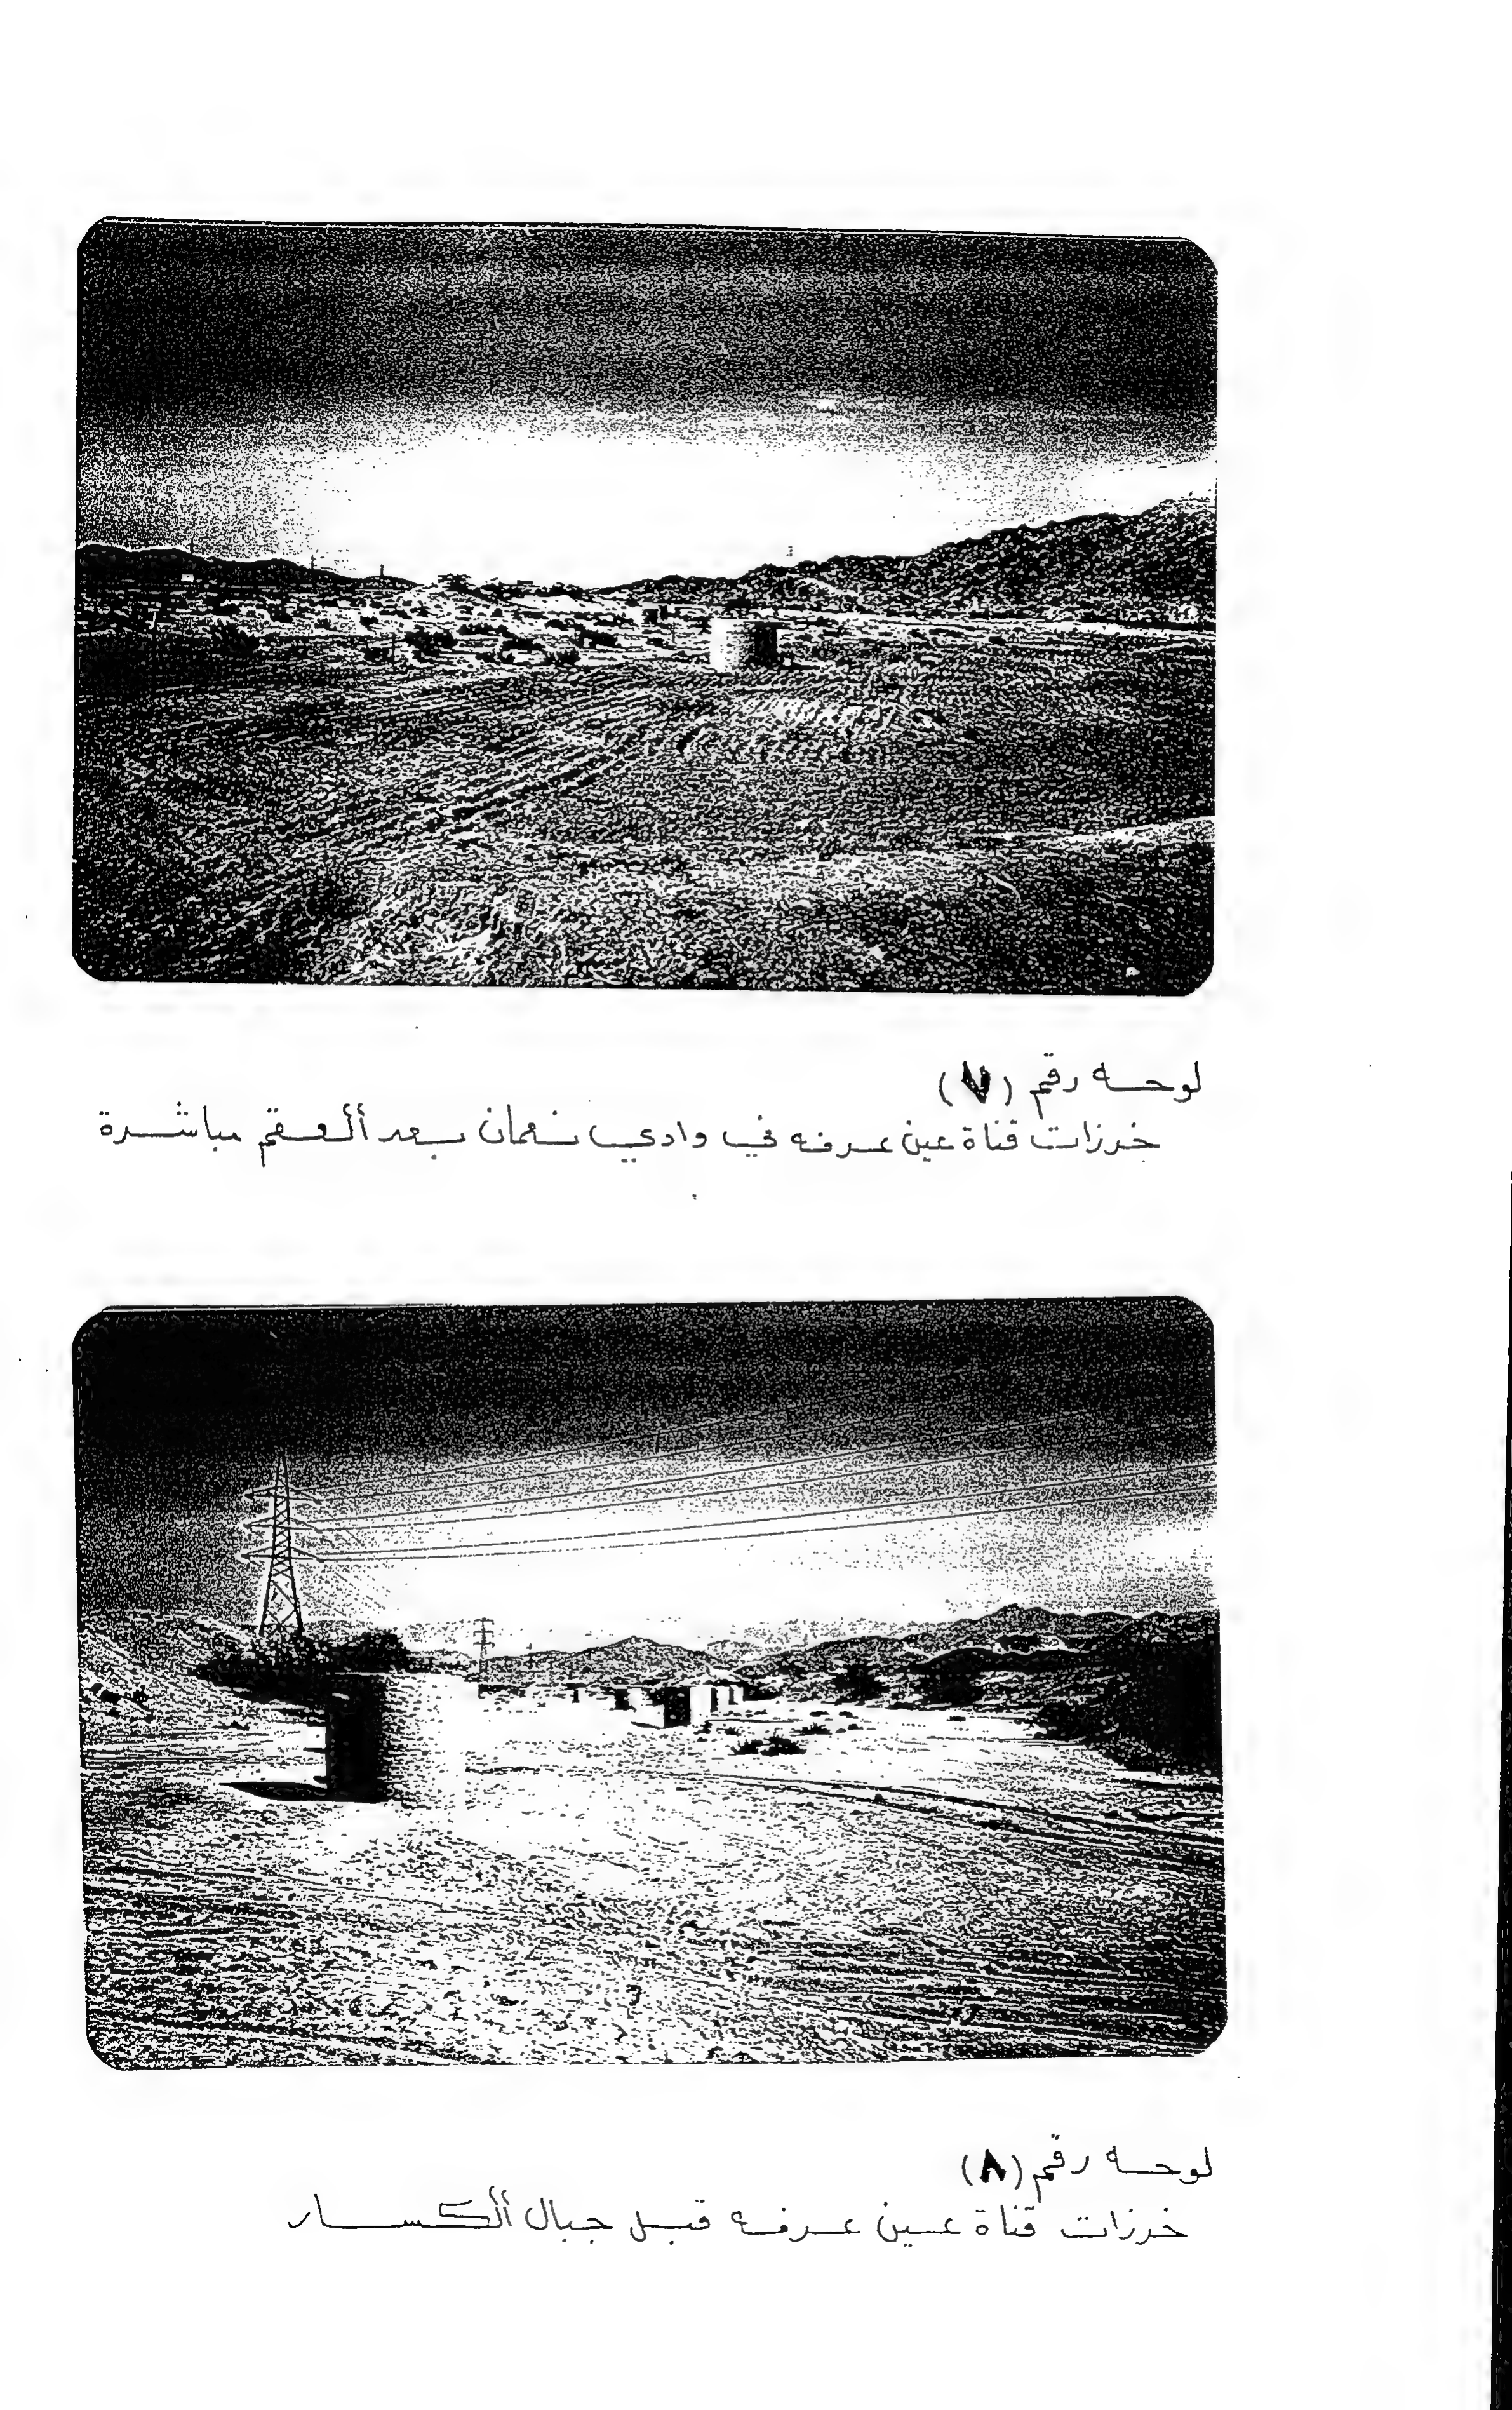 لوحه رقم (٧)
خرزات قناة عين عرفه في وادي نعمان بعد العقم مباشرة
لوحه رقم (٨)
خرزات قناة عين عرفه قبل جبال الكسار